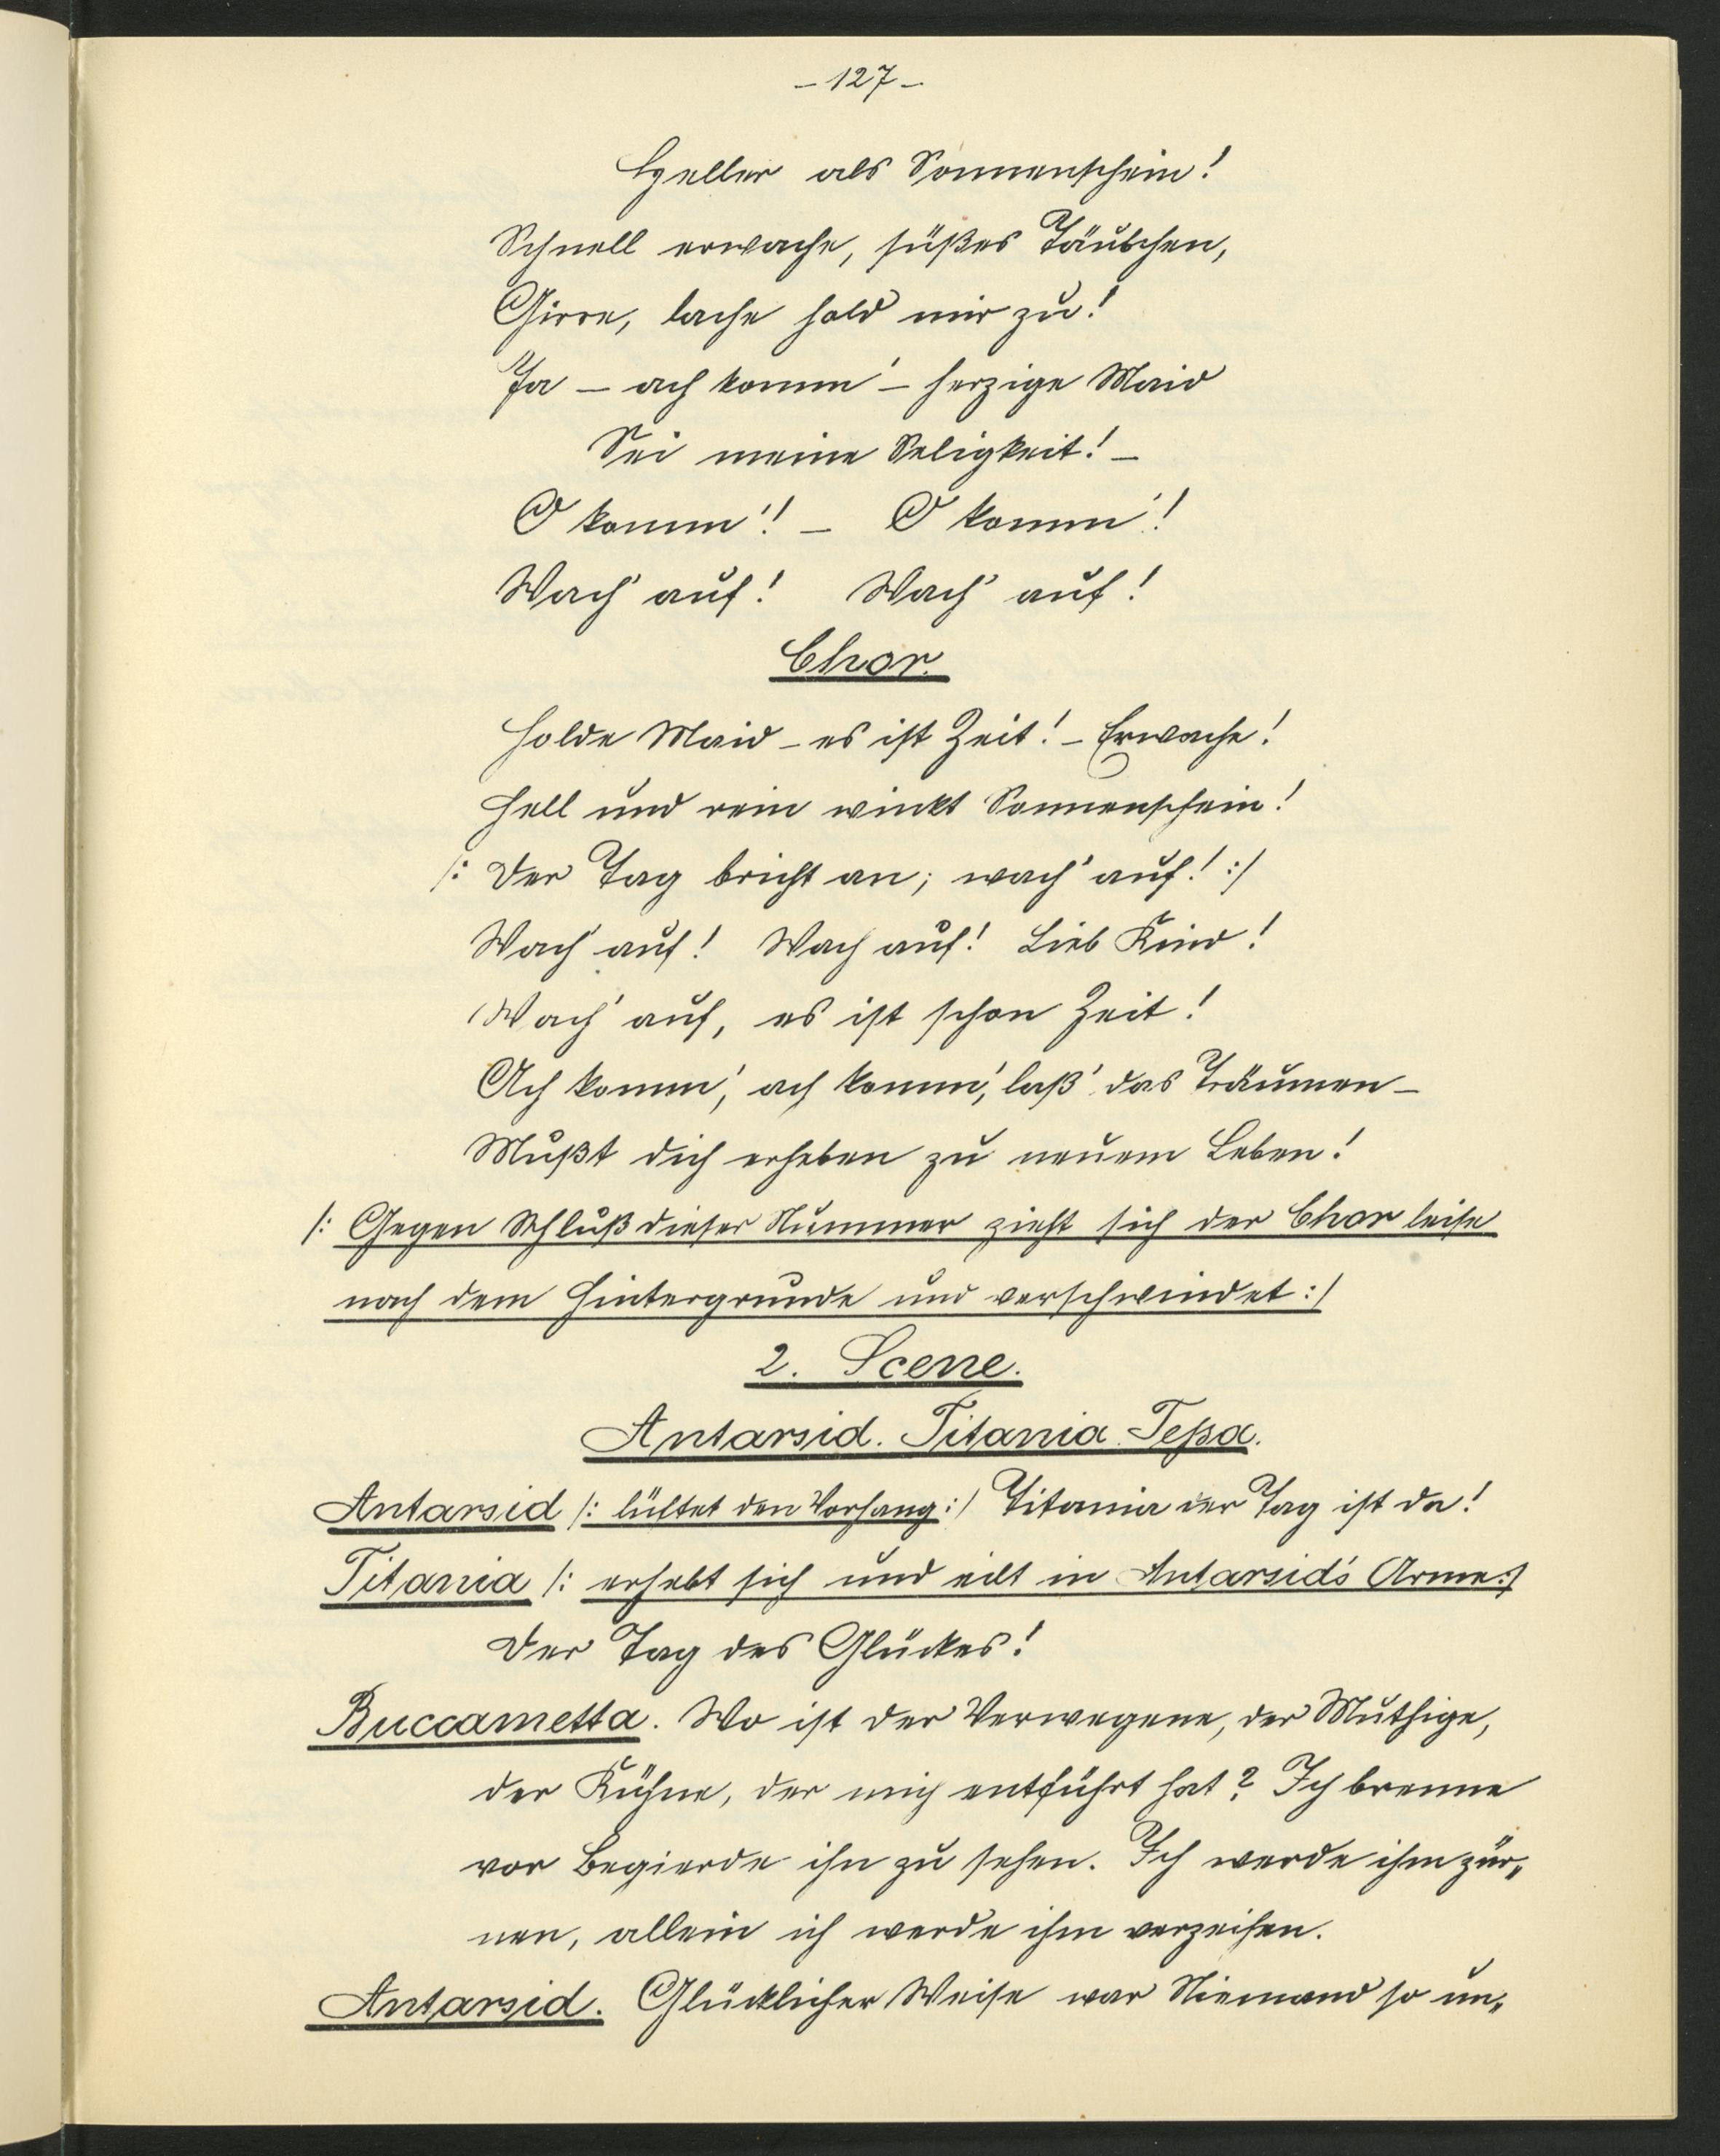 – 127 –
Heller als Sonnenschein!
Schnell erwache, süßes Täubchen,
Girre, lache hold mir zu!
Ja – ach komm' – herzige Maid
Sei meine Seligkeit! –
O komm'! – O komm'!
Wach' auf! Wach' auf!
Chor.
Holde Maid – es ist Zeit! – Erwache!
Hell und rein winkt Sonnenschein!
/: Der Tag bricht an; wach' auf! :/
Wach' auf! Wach auf! Lieb Kind!
Wach' auf, es ist schon Zeit!
Ach komm', ach komm', laß' das Träumen –
Mußt dich erheben zu neuem Leben!
/: Gegen Schluß dieser Nummer zieht sich der Chor leise
nach dem Hintergrunde und verschwindet :/
2. Scene.
Antarsid. Titania. Tepa.
Antarsid /: lüftet den Vorhang :/ Titania der Tag ist da!
Titania /: erhebt sich und eilt in Antarsid's Arme :/
Der Tag des Glückes!
Buccametta. Wo ist der Verwegene, der Muthige,
der Kühne, der mich entführt hat? Ich brenne
vor Begierde ihn zu sehen. Ich werde ihm zür„
nen, allein ich werde ihm verzeihen.
Antarsid. Glücklicher Weise war Niemand so un„